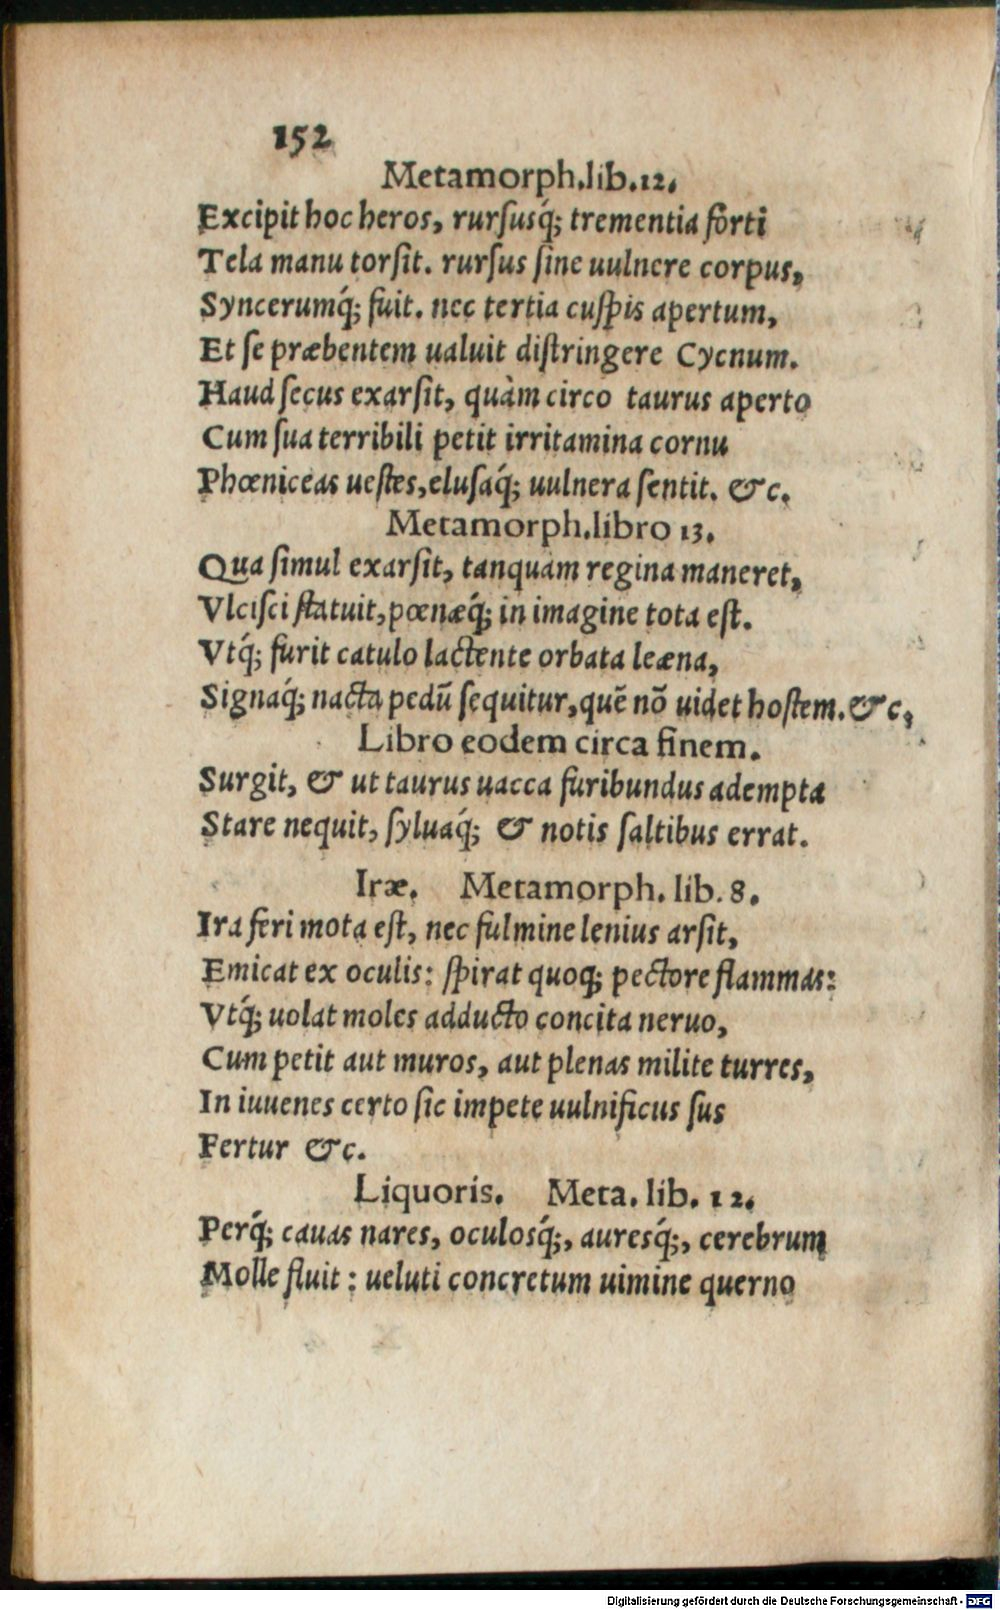 152
Metamorph.lib.12.
Excipit hoc heros, rursusq́; trementia forti
Tela manu torsit. rursus sine uulnere corpus,
Syncerumq́; fuit. nec tertia cuspis apertum,
Et se præbentem ualuit distringere Cycnum.
Haud secus exarsit, quàm circo taurus aperto
Cum sua terribili petit irritamina cornu
Phœniceas uestes,elusaq́; uulnera sentit. &c.
Metamorph.libro 13.
Qua simul exarsit, tanquam regina maneret,
Vlcisci statuit,pœnæq́; in imagine tota est.
Vtq́; furit catulo lactente orbata leæna,
Signaq́; nacta pedũ sequitur,quẽ nõ uidet hostem.&c.
Libro eodem circa finem.
Surgit, & ut taurus uacca furibundus adempta
Stare nequit, syluaq́; & notis saltibus errat.
Iræ. Metamorph. lib. 8.
Ira feri mota est, nec fulmine lenius arsit,
Emicat ex oculis: spirat quoq; pectore flammas:
Vtq́; uolat moles adducto concita neruo,
Cum petit aut muros, aut plenas milite turres,
In iuuenes certo sic impete uulnificus sus
Fertur &c.
Liquoris. Meta. lib. 12.
Perq́; cauas nares, oculosq́;, auresq́;, cerebrum
Molle fluit : ueluti concretum uimine querno
Digitalisierung gefördert durch die Deutsche Forschungsgemeinschaft - DFG